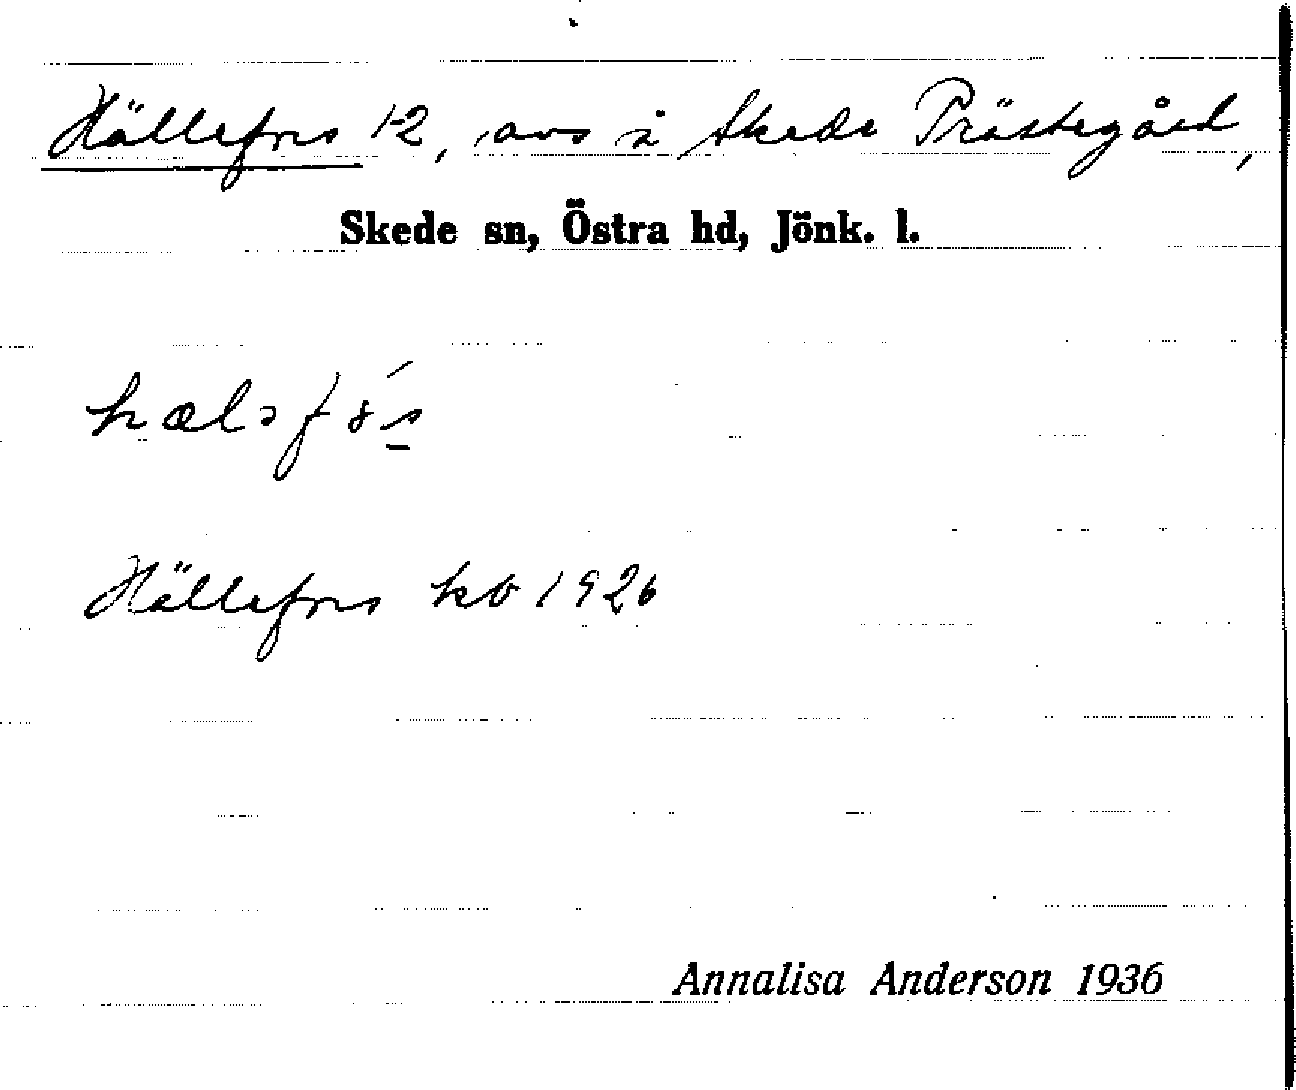 Hällefors 1-2, avs å Skede Prästegård,
Skede sn, Östra hd, Jönk. l.
hæləfȯ́s̲
Hällefors kb 1926
Annalisa Anderson 1936